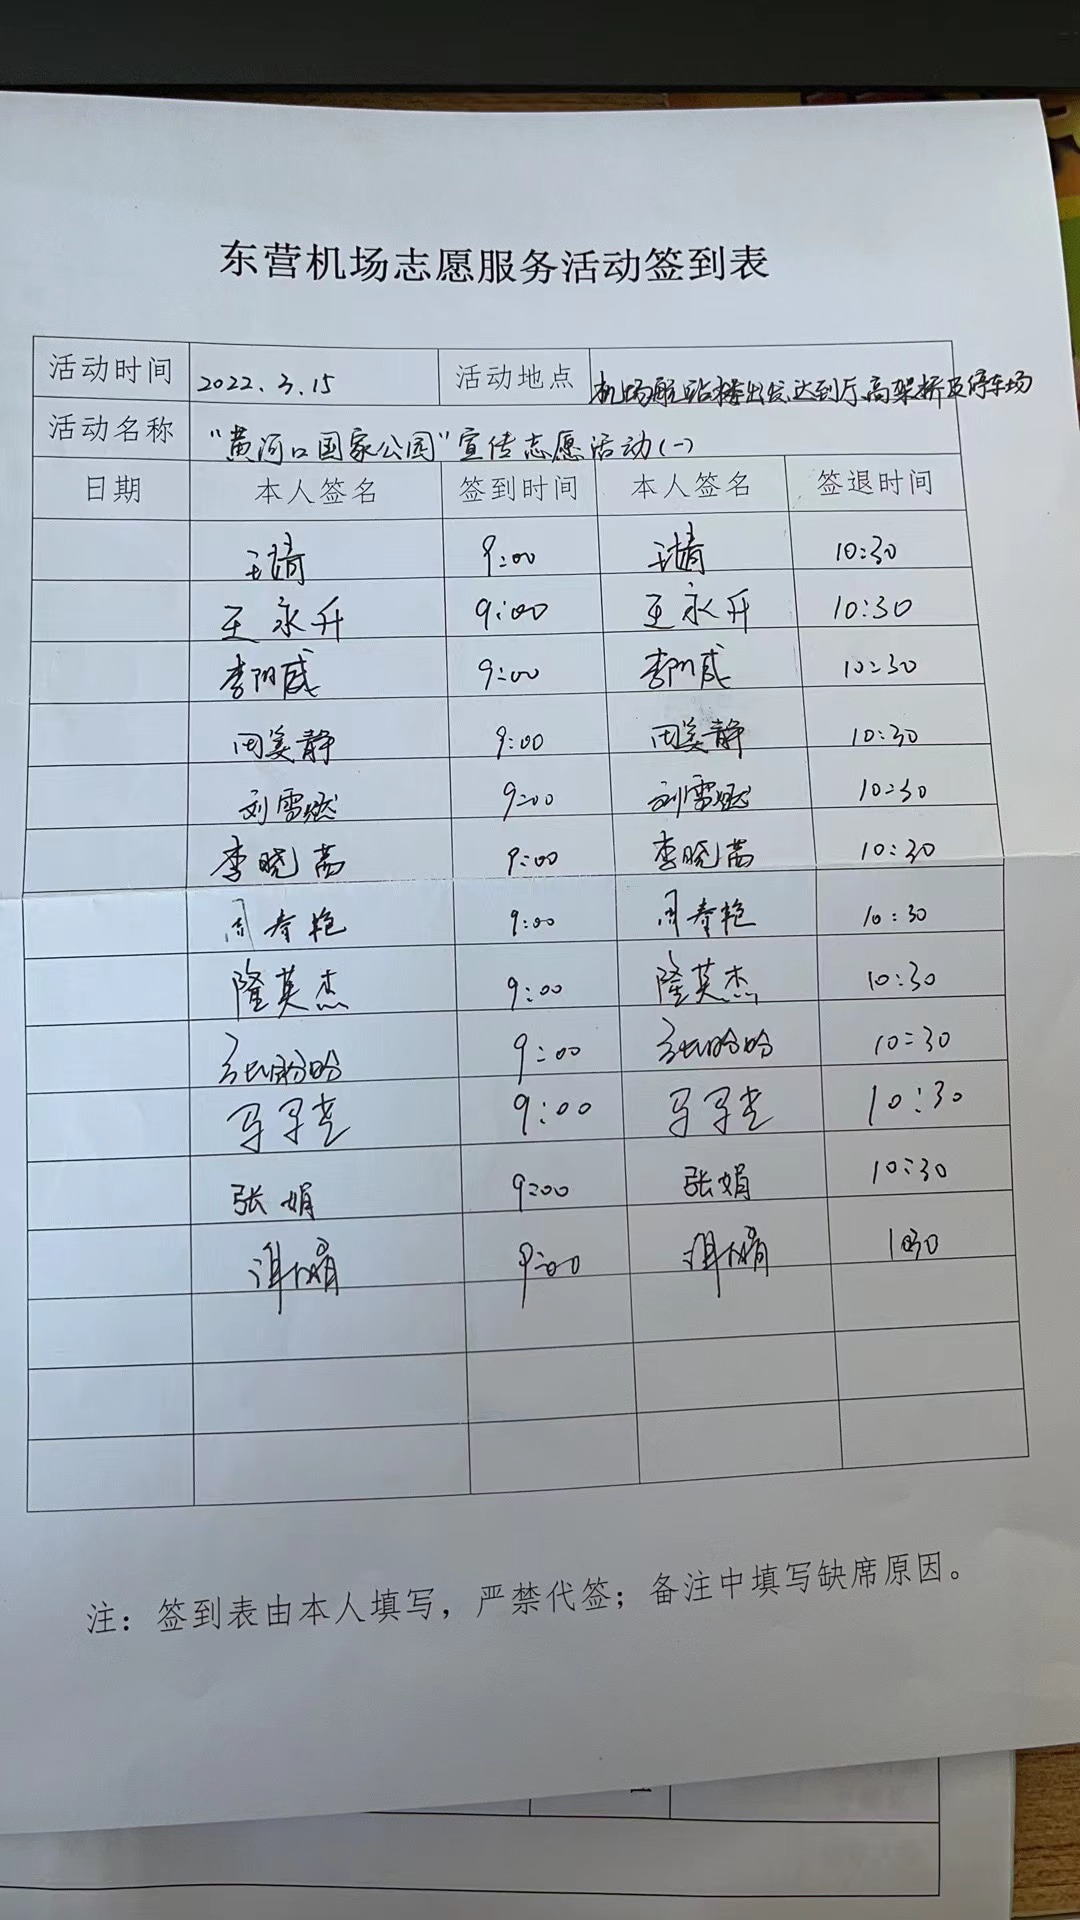 东营机场志愿服务活动签到表
活动时间 2022.3.15 活动地点 机场航站楼出发、达到厅、高架桥及停车场
活动名称 “黄河口国家公园”宣传志愿活动(一)
日期 本人签名 签到时间 本人签名 签退时间
王倩 9:00 王倩 10:30
王永升 9:00 王永升 10:30
李阳威 9:00 李阳威 10:30
田美静 9:00 田美静 10:30
刘雪燃 9:00 刘雪燃 10:30
李晓茜 9:00 李晓茜 10:30
周春艳 9:00 周春艳 10:30
隆英杰 9:00 隆英杰 10:30
9:00 10:30
9:00 10:30
张娟 9:00 张娟 10:30
9:00 1030
注：签到表由本人填写，严禁代签；备注中填写缺席原因。